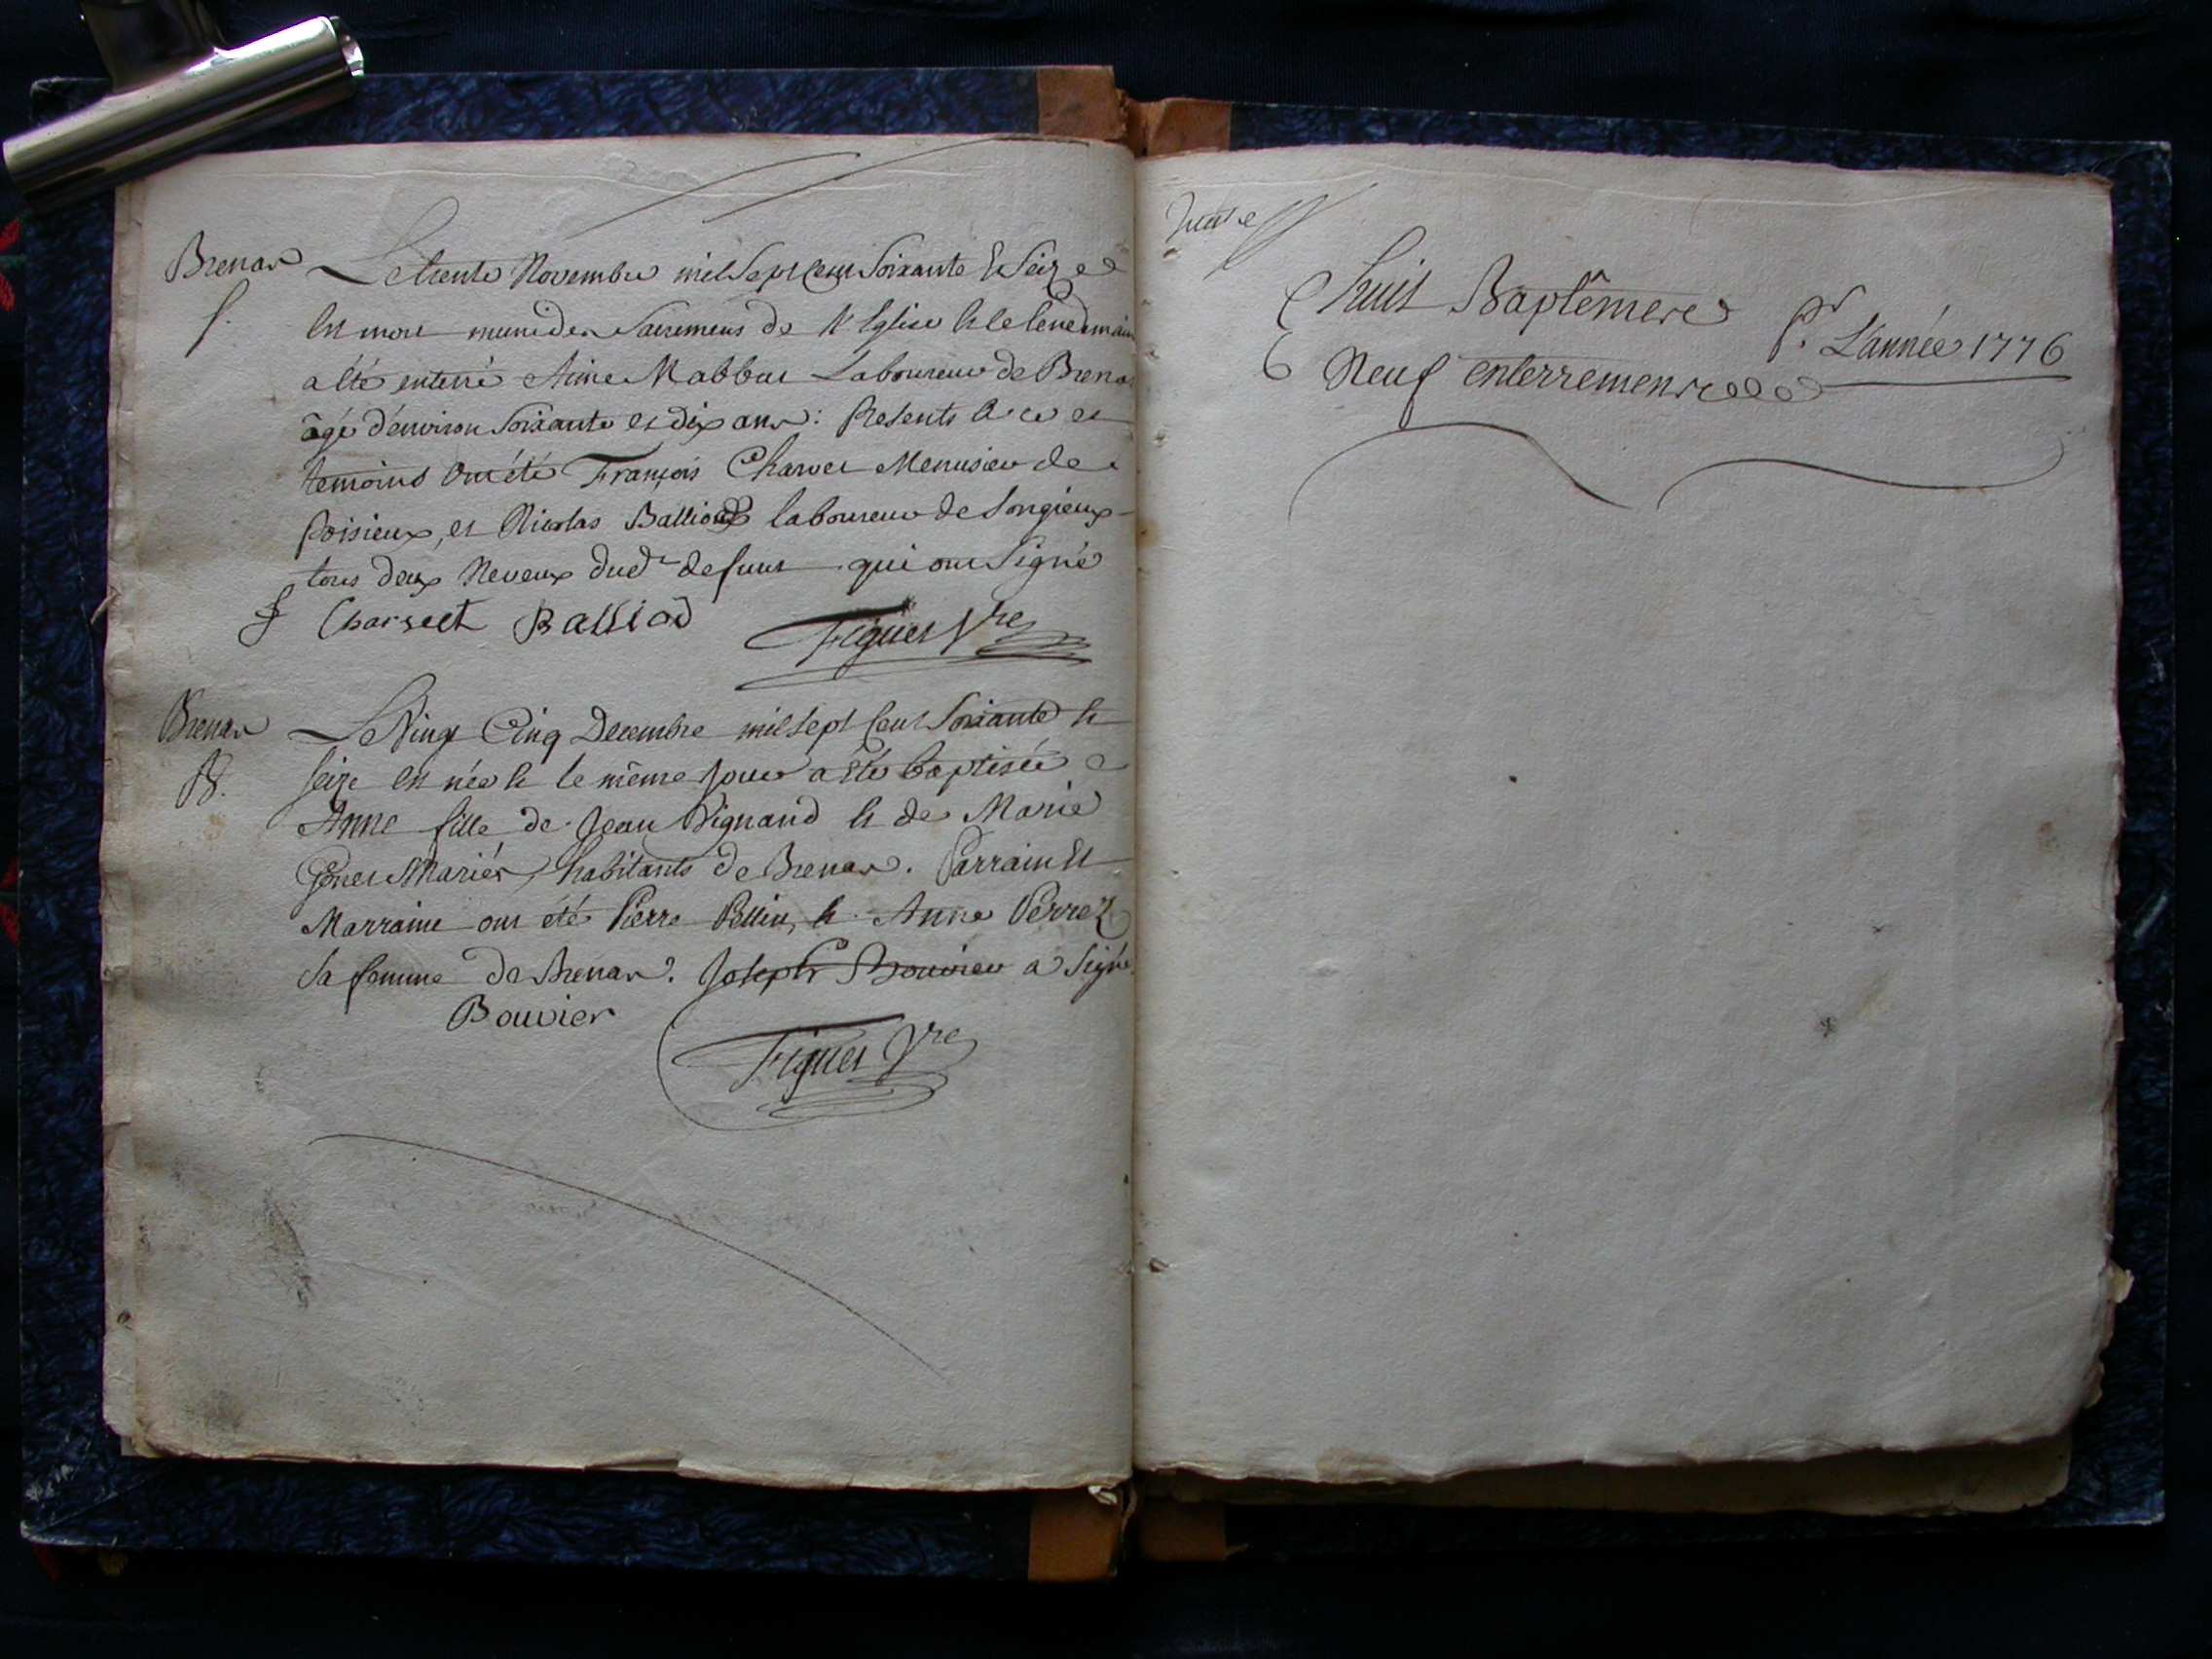 Brenas
Le trente Novembre mil Sept Cent Soixante & Seize
S.
est mort muni des Sacremens de l'Eglise & le lendemain
a êté enterré Aime Mabbut Laboureur de Brenas
âgé d'environ Soixante et dix ans: Presents à ce et
temoins ont été François Charvet Menusier de
Poisieux, et Nicolas Balliod laboureur de Songieux
tous deux Neveux dud.t defunt qui ont Signé
f Charvet Balliod
Figuet Vre
Brenas
Le Vingt Cinq Decembre mil sept Cent Soixante &
B.
Seize est née & le même jour a êté baptisée
Anne fille de Jean Vignand & de Marie
Genet Mariés, habitants de Brenas. Parrain Et
Marraine ont été Pierre Pellin, & Anne Perret
sa femme de Brenas. Joseph Bouvier a Signé
Bouvier
Figuet Vre
huit Baptêmes
Pr. L'année 1776
Neuf enterremens